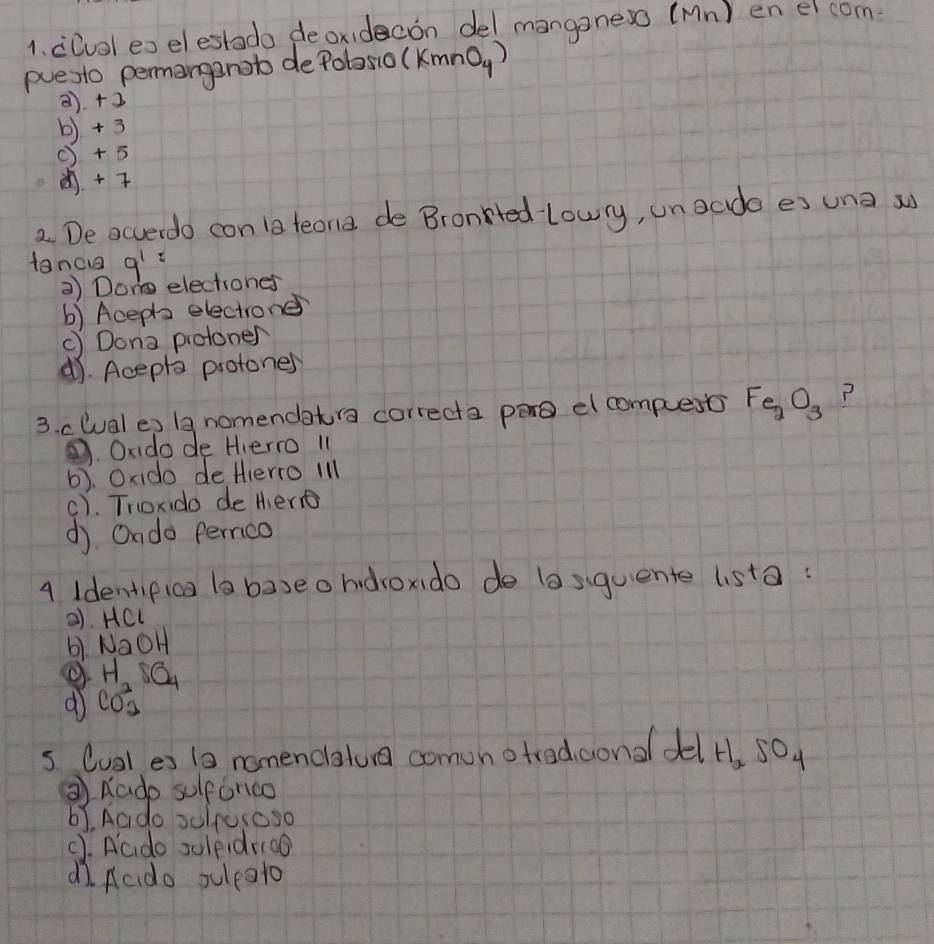 1. ¿Cual es el estado de oxidación del manganeso (Mn) en el com-
puesto permanganato de Potasio (KmnO4)
a). +2
b) +3
c) +5
d). +7
2. De acuerdo con la teoria de Bronsted-Lowry, un acido es una sus
tancia q':
a) Dona electrones
b) Acepta electrones
c) Dona protones
d). Acepta protones
3. ¿Cual es la nomenclatura correcta para el compuesto Fe2O3?
a). Oxido de Hierro II
b). Oxido de Hierro III
c). Trioxido de Hierro
d). Oxido ferrico
4 Identifica la base o hidroxido de la siguiente lista:
a). HCl
b). NaOH
c). H2SO4
d) CO2
5 Cual es la nomenclatura comun o tradicional del H2SO4
a). Acido sulfúrico
b). Acido sulfuroso
c). Ácido sulfidrico
d). Acido sulfato